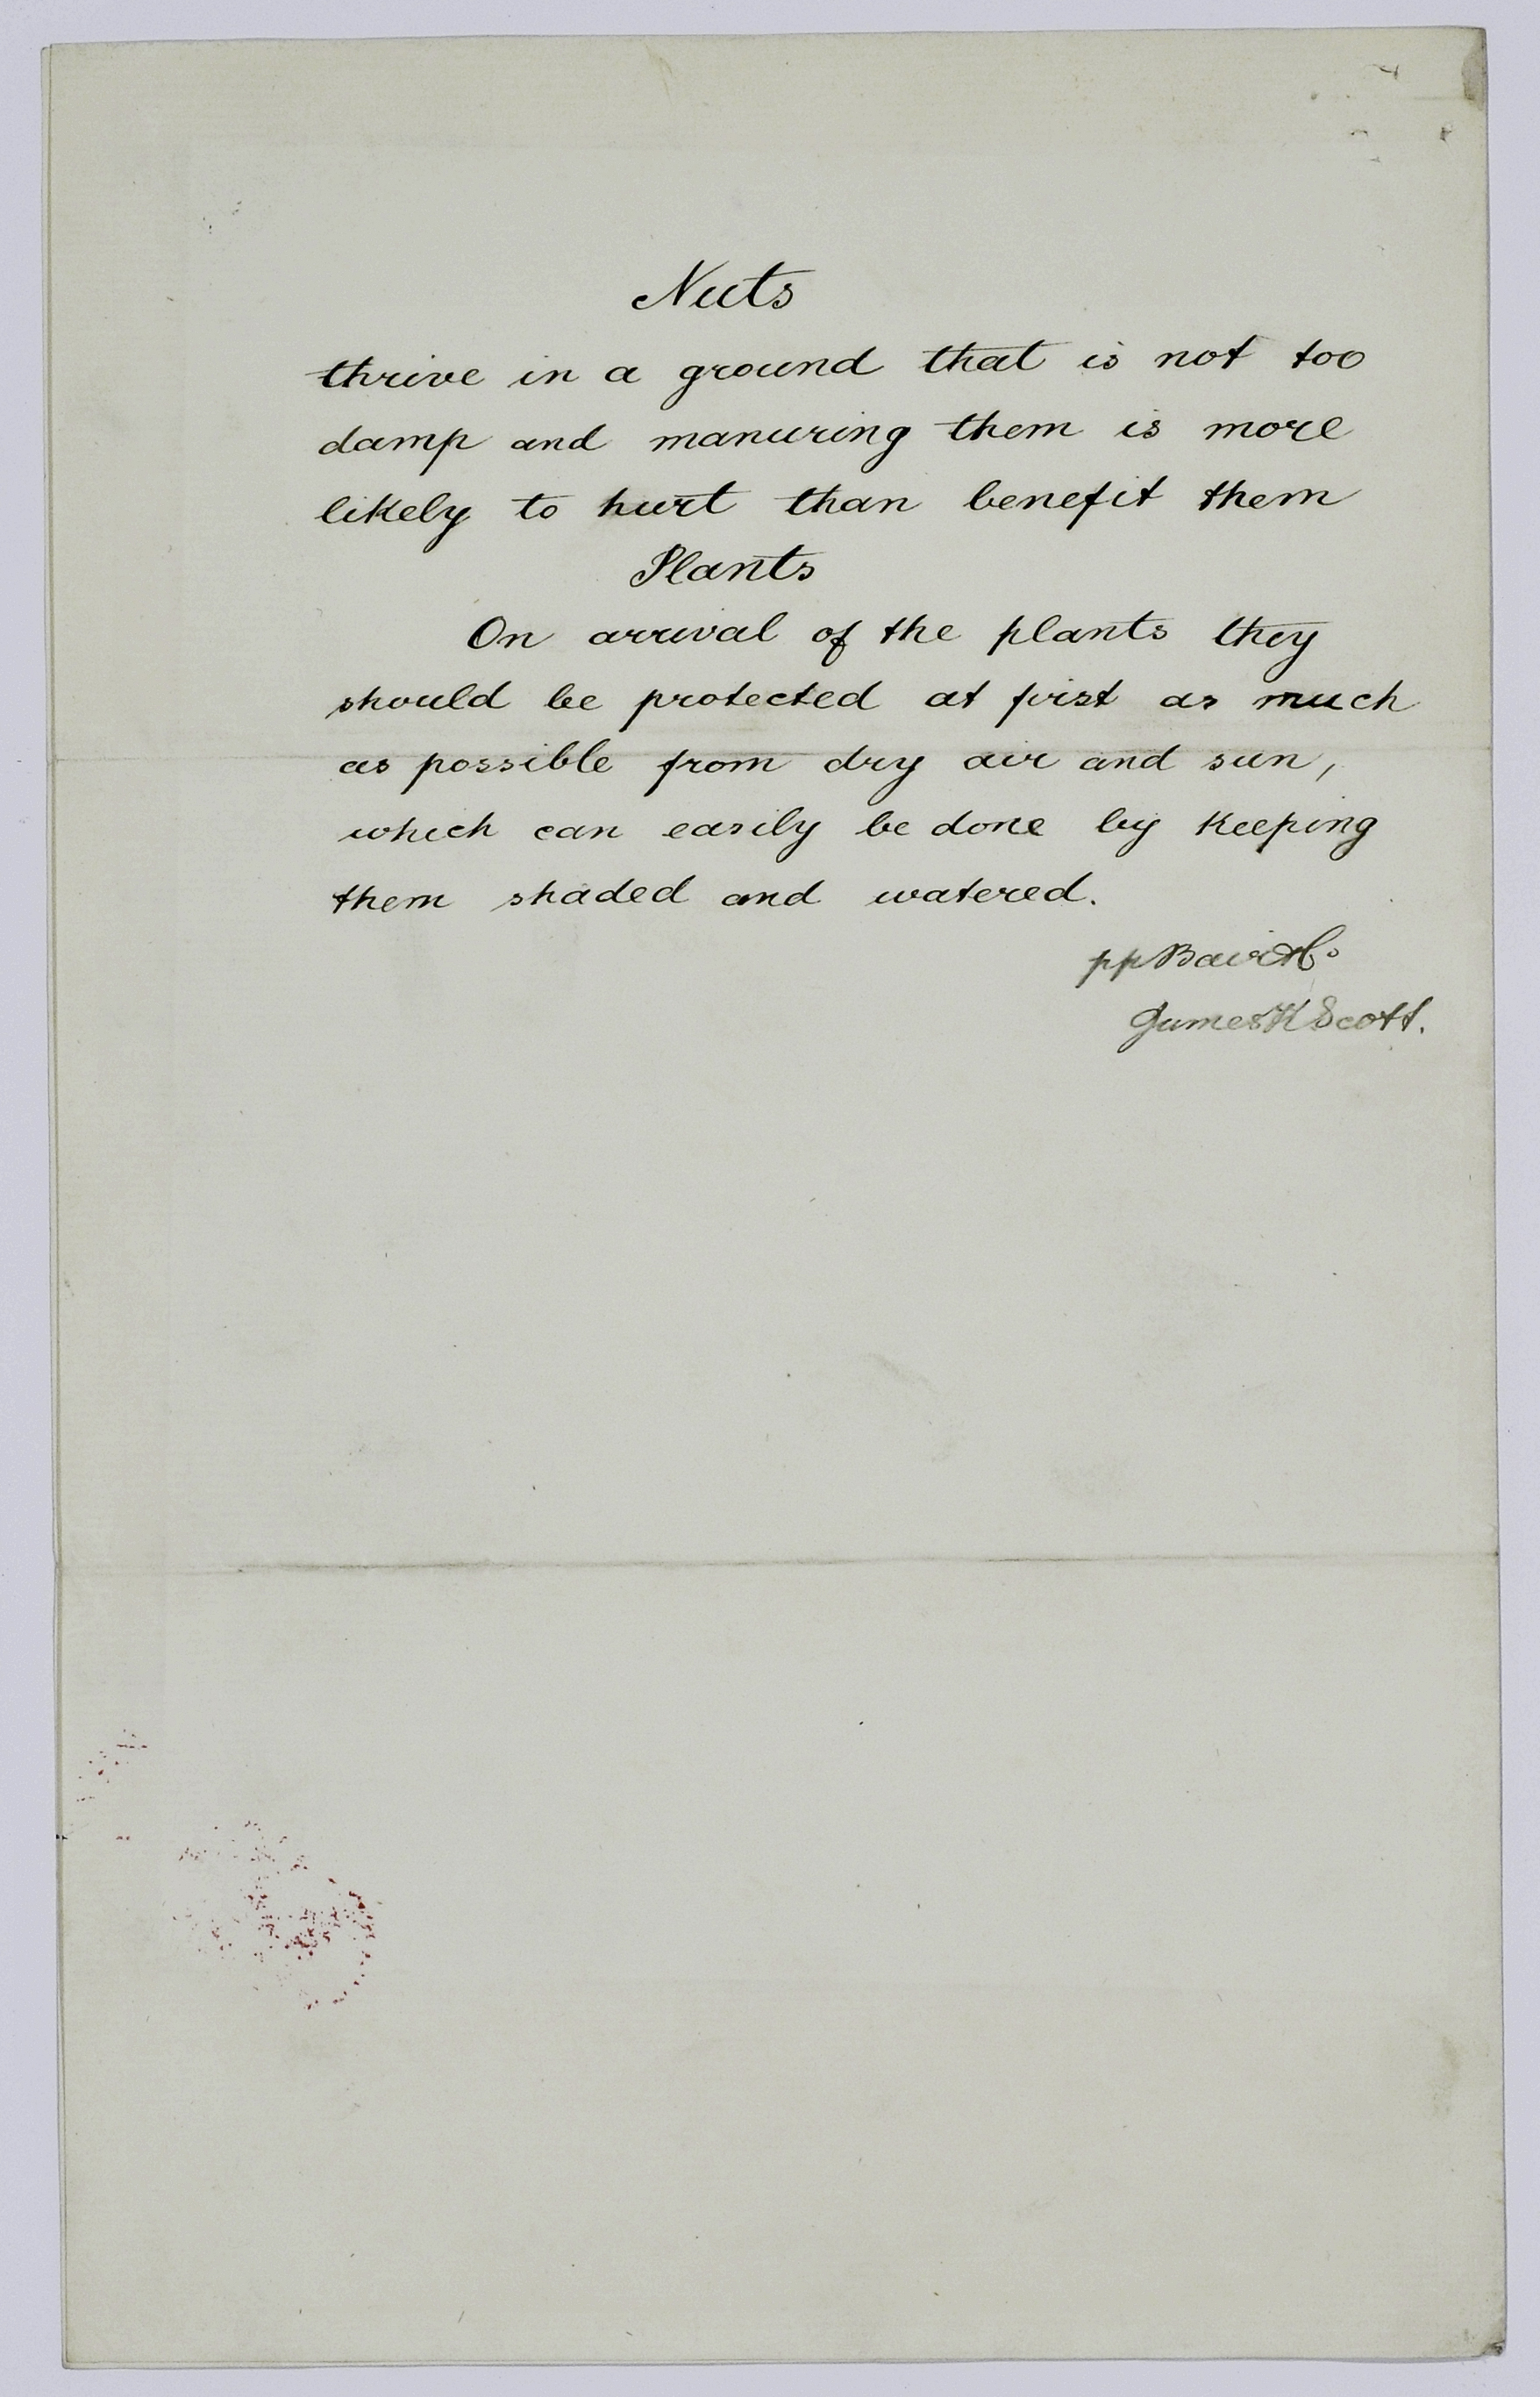 Nuts
thrive in a ground that is not too
damp and manuring them is more
likely to hurt than benefit them
Plants
On arrival of the plants they
should be protected at first as much
as possible from dry air and sun,
which can easily be done by keeping
them shaded and watered.
pp
James H Scott.